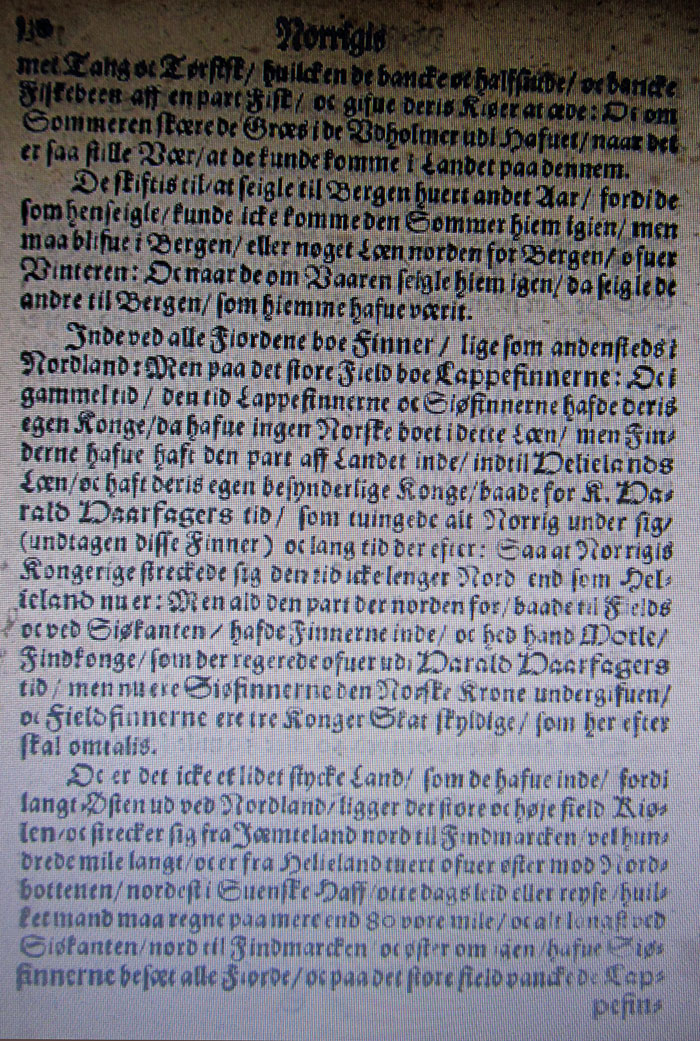 Norrigis
met Tang oc Tørfisk/ huilcken de bancke oc halfsiude/ oc bancke
Fiskebeen aff en part Fisk/ oc gifue deris Kiøer at æde: Oc om
Sommeren skære de Græs i de Vdholmer udi Hafuet/ naar det
er saa stille Vær/ at de kunde komme i Landet paa dennem.
De skiftis til/ at seigle til Bergen huert andet Aar/ fordi de
som henseigle/ kunde icke komme den Sommer hiem igien/ men
maa blifue i Bergen/ eller noget Læn norden for Bergen/ ofuer
Vinteren: Oc naar de om Vaaren seigle hiem igen/ da seigle de
andre til Bergen/ som hiemme hafue værit.
Inde ved alle Fiordene boe Finner/ lige som andensteds i
Nordland: Men paa det store Field boe Lappefinnerne: Oc i
gammel tid/ den tid Lappefinnerne oc Siøfinnerne hafde deris
egen Konge/ da hafue ingen Norske boet i dette Læn/ men Fin⸗
derne hafue haft den part aff Landet inde/ indtil Helielands
Læn/ oc haft deris egen besynderlige Konge/ baade for K. Ha⸗
rald Haarfagers tid/ som tuingede alt Norrig under sig/
(undtagen disse Finner) oc lang tid der efter: Saa at Norrigis
Kongerige streckede sig den tid icke lenger Nord end som Hel⸗
ieland nu er: Men ald den part der norden for/ baade til Fields
oc ved Siøkanten/ hafde Finnerne inde/ oc hed hand Motle/
Findkonge/ som der regerede ofuer udi Harald Haarfagers
tid/ men nu ere Siøfinnerne den Norske Krone undergifuen/
oc Fieldfinnerne ere tre Konger Skat skyldige/ som her efter
skal omtalis.
Oc er det icke et lidet stycke Land/ som de hafue inde/ fordi
langt Østen ud ved Nordland/ ligger det store oc høje field Kiø⸗
len/ oc strecker sig fra Jæmteland nord til Findmarcken/ vel hun⸗
drede mile langt/ oc er fra Helieland tuert ofuer øster mod Nord⸗
bottenen/ nordest i Suenske Haff/ otte dags leid eller reyse/ huil⸗
ket mand maa regne paa mere end 80 vore mile/ oc alt langst ved
Siøkanten/ nord til Findmarcken oc øster om igen/ hafue Siø⸗
finnerne besæt alle Fiorde/ oc paa det store field vancke de Lap⸗
pefin⸗